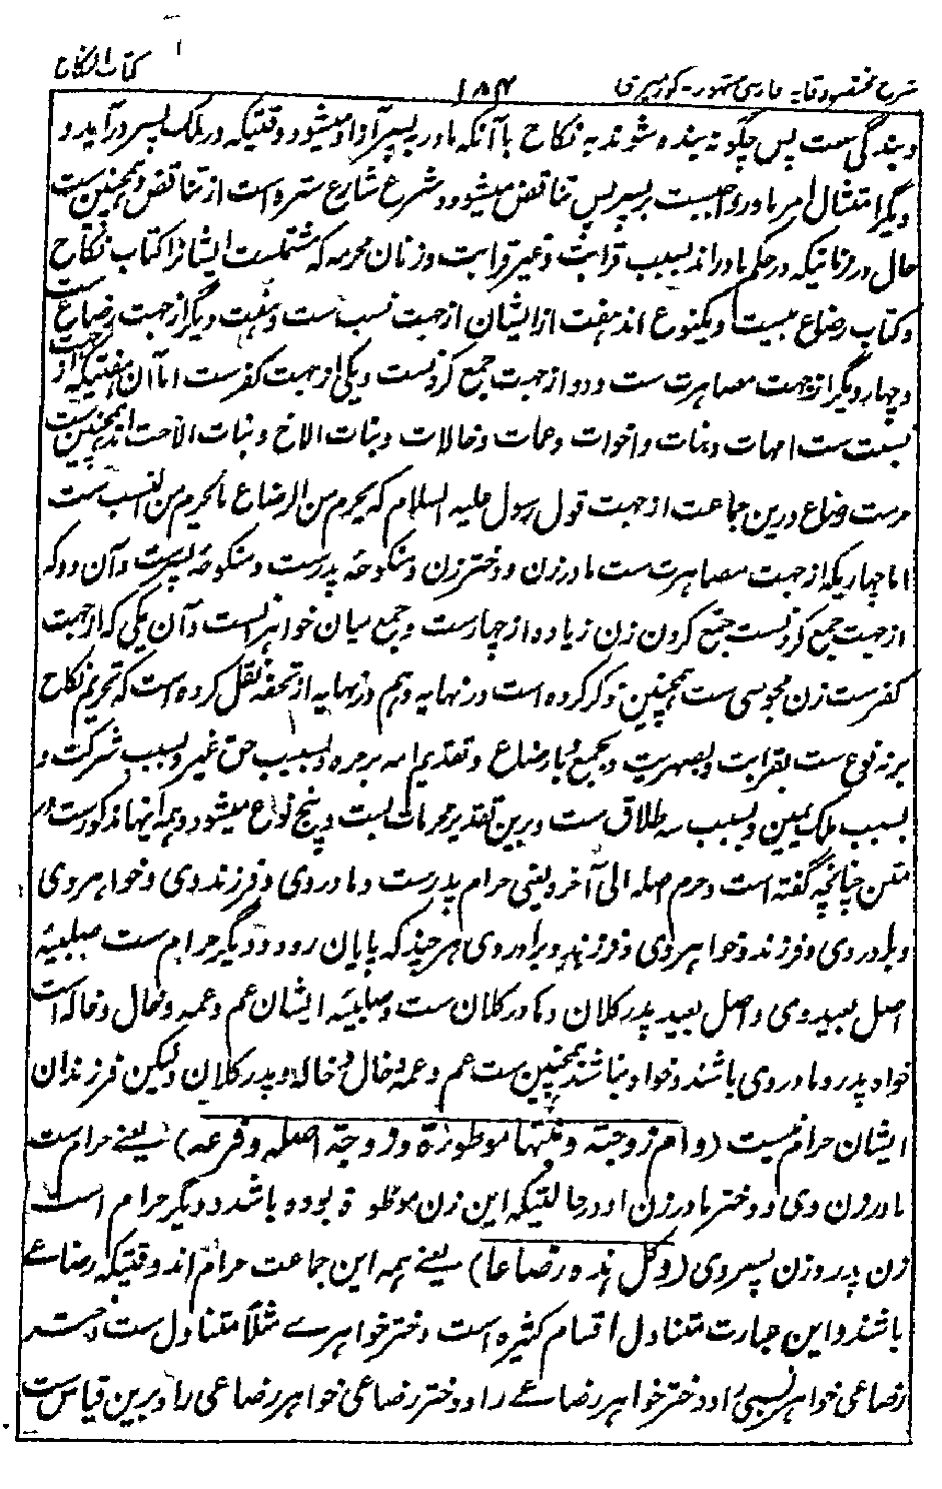 شرح مختصر وقایه فارسی مشهور-کور میری ۱۸۴ کتاب النکاح
و بندگی ست پس چگونه بنده شوند به نکاح با آنکه مادر به پسر آزاد میشود وقتیکه در ملک پسر در آید و
دیگر امتثال امر مادر واجبست بر پسر پس تناقض میشود و شرع شارع ستره است از تناقض و همچنین ست
حال در زنانیکه در حکم مادر اند بسبب قرابت و غیر قرابت و زنان محرمه که مشتملست ایشانرا کتاب نکاح
و کتاب رضاع بیست و یکنوع اند هفت از ایشان از جهت نسب ست و هفت دیگر از جهت رضاع ست
و چهار دیگر از جهت مصاهرت ست و دو از جهت جمع کردنست و یکی از جهت کفرست اما آن هفتیکه از جهت
نسبت ست امهات و بنات و اخوات و عمات و خالات و بنات الاخ و بنات الاخت اند همچنین ست
مرست رضاع درین جماعت از جهت قول رسول علیه السلام که یحرم من الرضاع ما یحرم من النسب ست
اما چهاریکه از جهت مصاهرت ست مادر زن و دختر زن و منکوحهٔ پدرست و منکوحهٔ پسرست و آن دو که
از جهت جمع کردنست جمع کردن زن زیاده از چهارست و جمع میان خواهرانست و آن یکی که از جهت
کفرست زن مجوسی ست همچنین ذکر کرده است در نهایه و هم در نهایه از تحفه نقل کرده است که تحریم نکاح
بر نه نوع ست بقرابت و بصهریت و بجمع و بارضاع و تقدیم امه بر حره و بسبب حق غیر و بسبب شرکت و
بسبب ملک یمین و بسبب سه طلاق ست و برین تقدیر محرمات بست و پنج نوع میشود و همه اینها مذکورست در
متن چنانچه گفته است و حرم اصله الی آخره یعنی حرام پدرست و مادر وی و فرزند وی و خواهر وی
و برادر وی و فرزند خواهر وی و فرزند برادر وی هر چند که پایان رود و دیگر حرام ست صلبیهٔ
اصل بعید وی و اصل بعید پدر کلان و مادر کلان ست و صلبیهٔ ایشان عم و عمه و خال و خاله است
خواه پدر و مادر وی باشند و خواه نباشند همچنین ست عم و عمه و خال و خاله و پدر کلان ولیکن فرزندان
ایشان حرام نیست (و ام زوجته و بنتها موطوئة و زوجة اصله و فرعه) یعنے حرام ست
مادر زن وی و دختر مادر زن او در حالتیکه این زن موطوءة بوده باشد و دیگر حرام است
زن پدر و زن پسر وی (و کل هذه رضاعا) یعنے همه این جماعت حرام اند وقتیکه رضاعے
باشند و این عبارت متناول اقسام کثیره است دختر خواهرے مثلا متناول ست دختر
رضاعی خواهر نسبی را و دختر خواهر رضاعے را و دختر رضاعی خواهر رضاعی را و برین قیاس ست